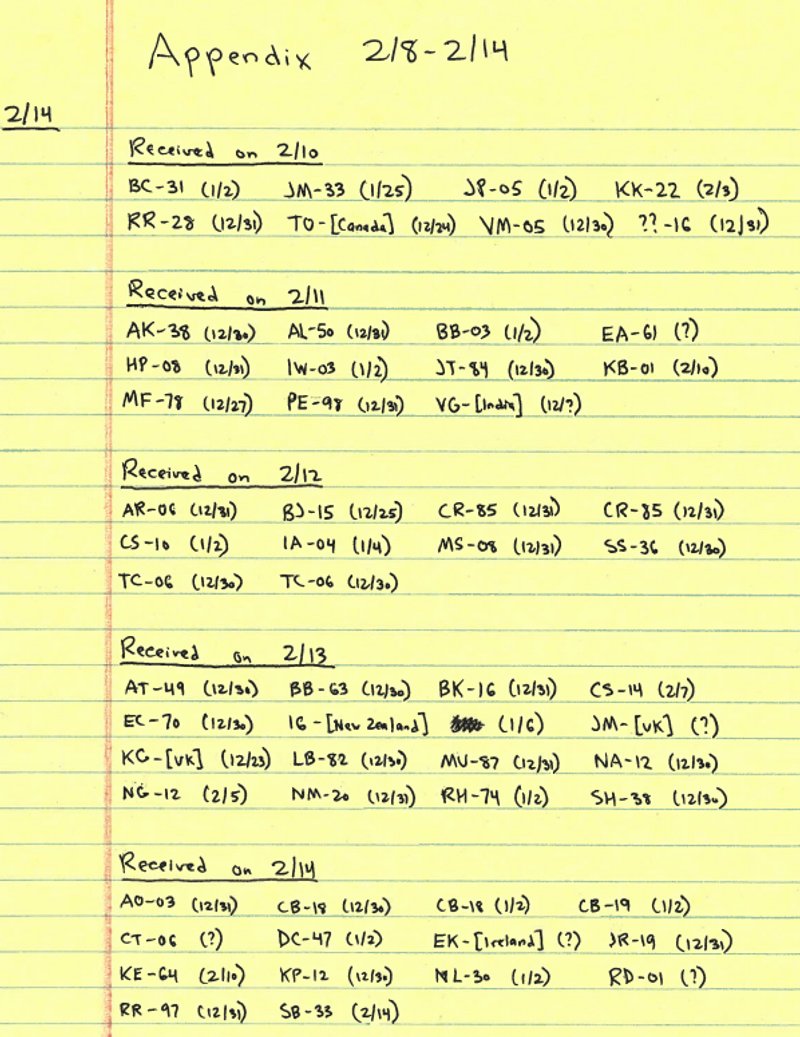 Appendix 2/8-2/14
2/14
Received on 2/10
BC-31 (1/2) JM-33 (1/25) JP-05 (1/2) KK-22 (2/3)
RR-28 (12/31) TO-[Canada] (12/24) VM-05 (12/30) ??-16 (12/31)
Received on 2/11
AK-38 (12/30) AL-50 (12/31) BB-03 (1/2) EA-61 (?)
HP-08 (12/31) IW-03 (1/2) JT-84 (12/30) KB-01 (2/10)
MF-78 (12/27) PE-98 (12/31) VG-[India] (12/?)
Received on 2/12
AR-06 (12/31) BJ-15 (12/25) CR-85 (12/31) CR-85 (12/31)
CS-10 (1/2) IA-04 (1/4) MS-08 (12/31) SS-36 (12/30)
TC-06 (12/30) TC-06 (12/30)
Received on 2/13
AT-49 (12/30) BB-63 (12/30) BK-16 (12/31) CS-14 (2/7)
EC-70 (12/30) IG-[New Zealand] (1/6) JM-[UK] (?)
KG-[UK] (12/23) LB-82 (12/30) MU-87 (12/31) NA-12 (12/30)
NG-12 (2/5) NM-20 (12/31) RH-74 (1/2) SH-38 (12/30)
Received on 2/14
AO-03 (12/31) CB-18 (12/30) CB-18 (1/2) CB-19 (1/2)
CT-06 (?) DC-47 (1/2) EK-[Ireland] (?) JR-19 (12/31)
KE-64 (2/10) KP-12 (12/30) NL-30 (1/2) RD-01 (?)
RR-97 (12/31) SB-33 (2/14)